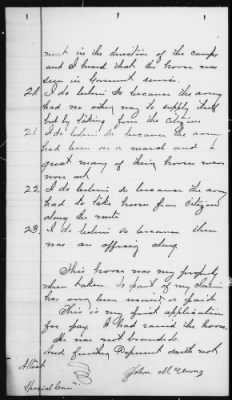 went in the direction of the camps
and I heard that the horse was
seen in Government service.
20. I do believe so because the army
had no other way to supply itself
but by taking from the citizens
21. I do believe so because the army
had been on a march and a
great many of their horses were
worn out
22. I do believe so because the army
had to take horses from citizens
along the route.
23. I do believe so because there
was an officer along
This horse was my property
when taken. No part of my claim
has ever been or paid
This is my first application
for pay. I had raised the horse
He was not branded.
And further Deponent saith not
Attest
John M.
Special Com